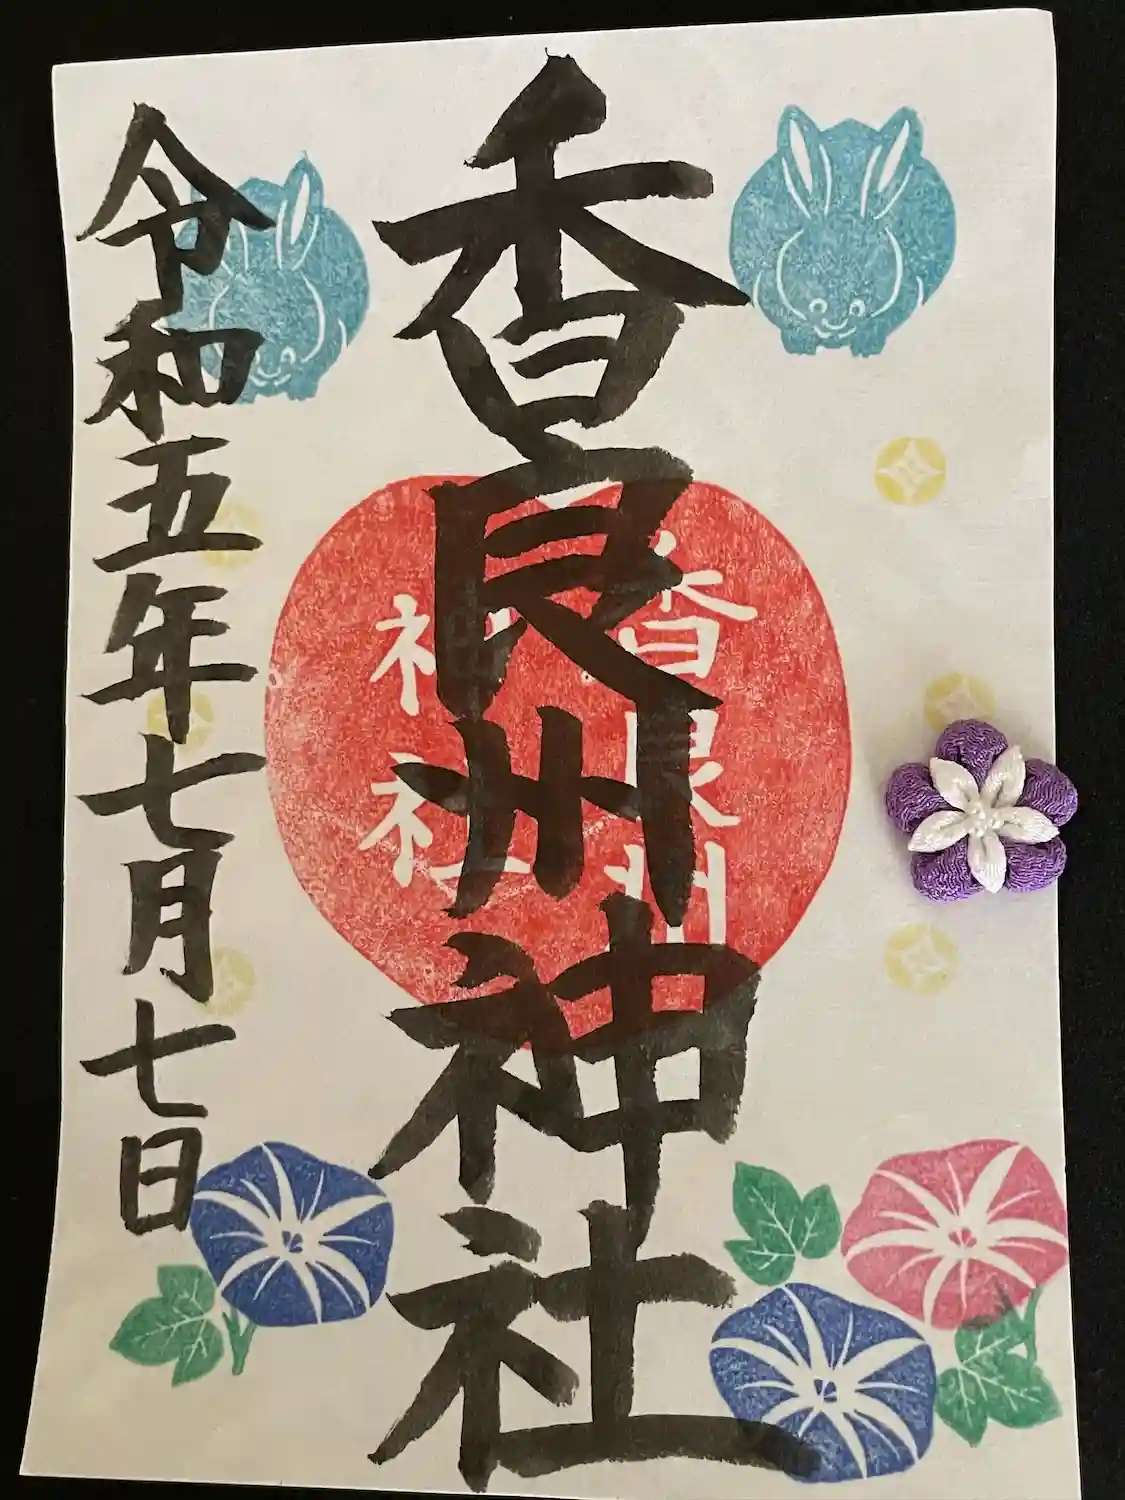 香良州神社
香良州
神社
令和五年七月七日